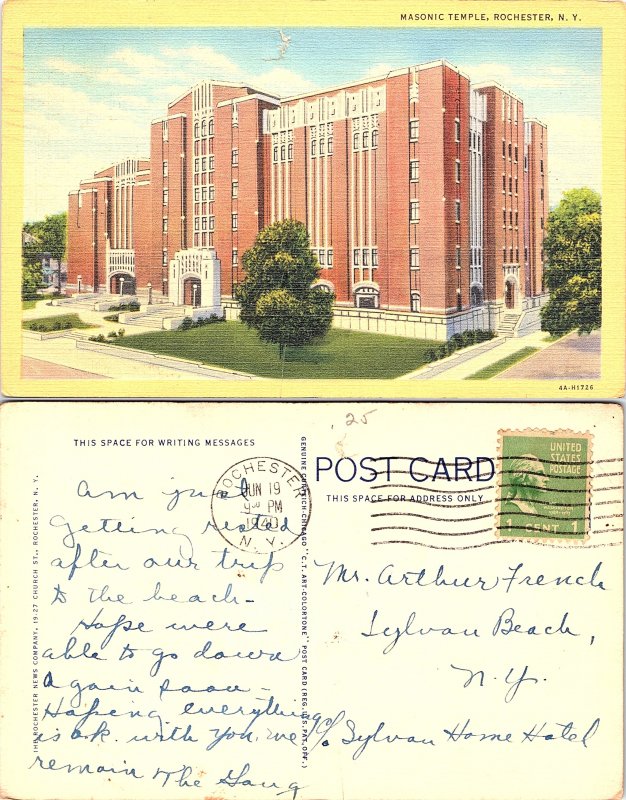 MASONIC TEMPLE, ROCHESTER, N. Y.
4A-H1726
.25
THIS SPACE FOR WRITING MESSAGES
Am just
Getting rested
after our trip
to the beach-
Hope were
able to go down
Again soon-
Hoping everything
is o.k. with you. we
remain The Gang
ROCHESTER
JUN 19
9 30 PM
1940
N.Y.
(THE ROCHESTER NEWS COMPANY, 19-27 CHURCH ST., ROCHESTER, N. Y.
GENUINE CURTEICH-CHICAGO "C.T. ART-COLORTONE" POST CARD (REG. U.S. PAT. OFF.)
POST CARD
THIS SPACE FOR ADDRESS ONLY
UNITED
STATES
POSTAGE
WASHINGTON
1 CENT 1
Mr. Arthur French
Sylvan Beach,
N.Y.
c/o Sylvan Home Hotel